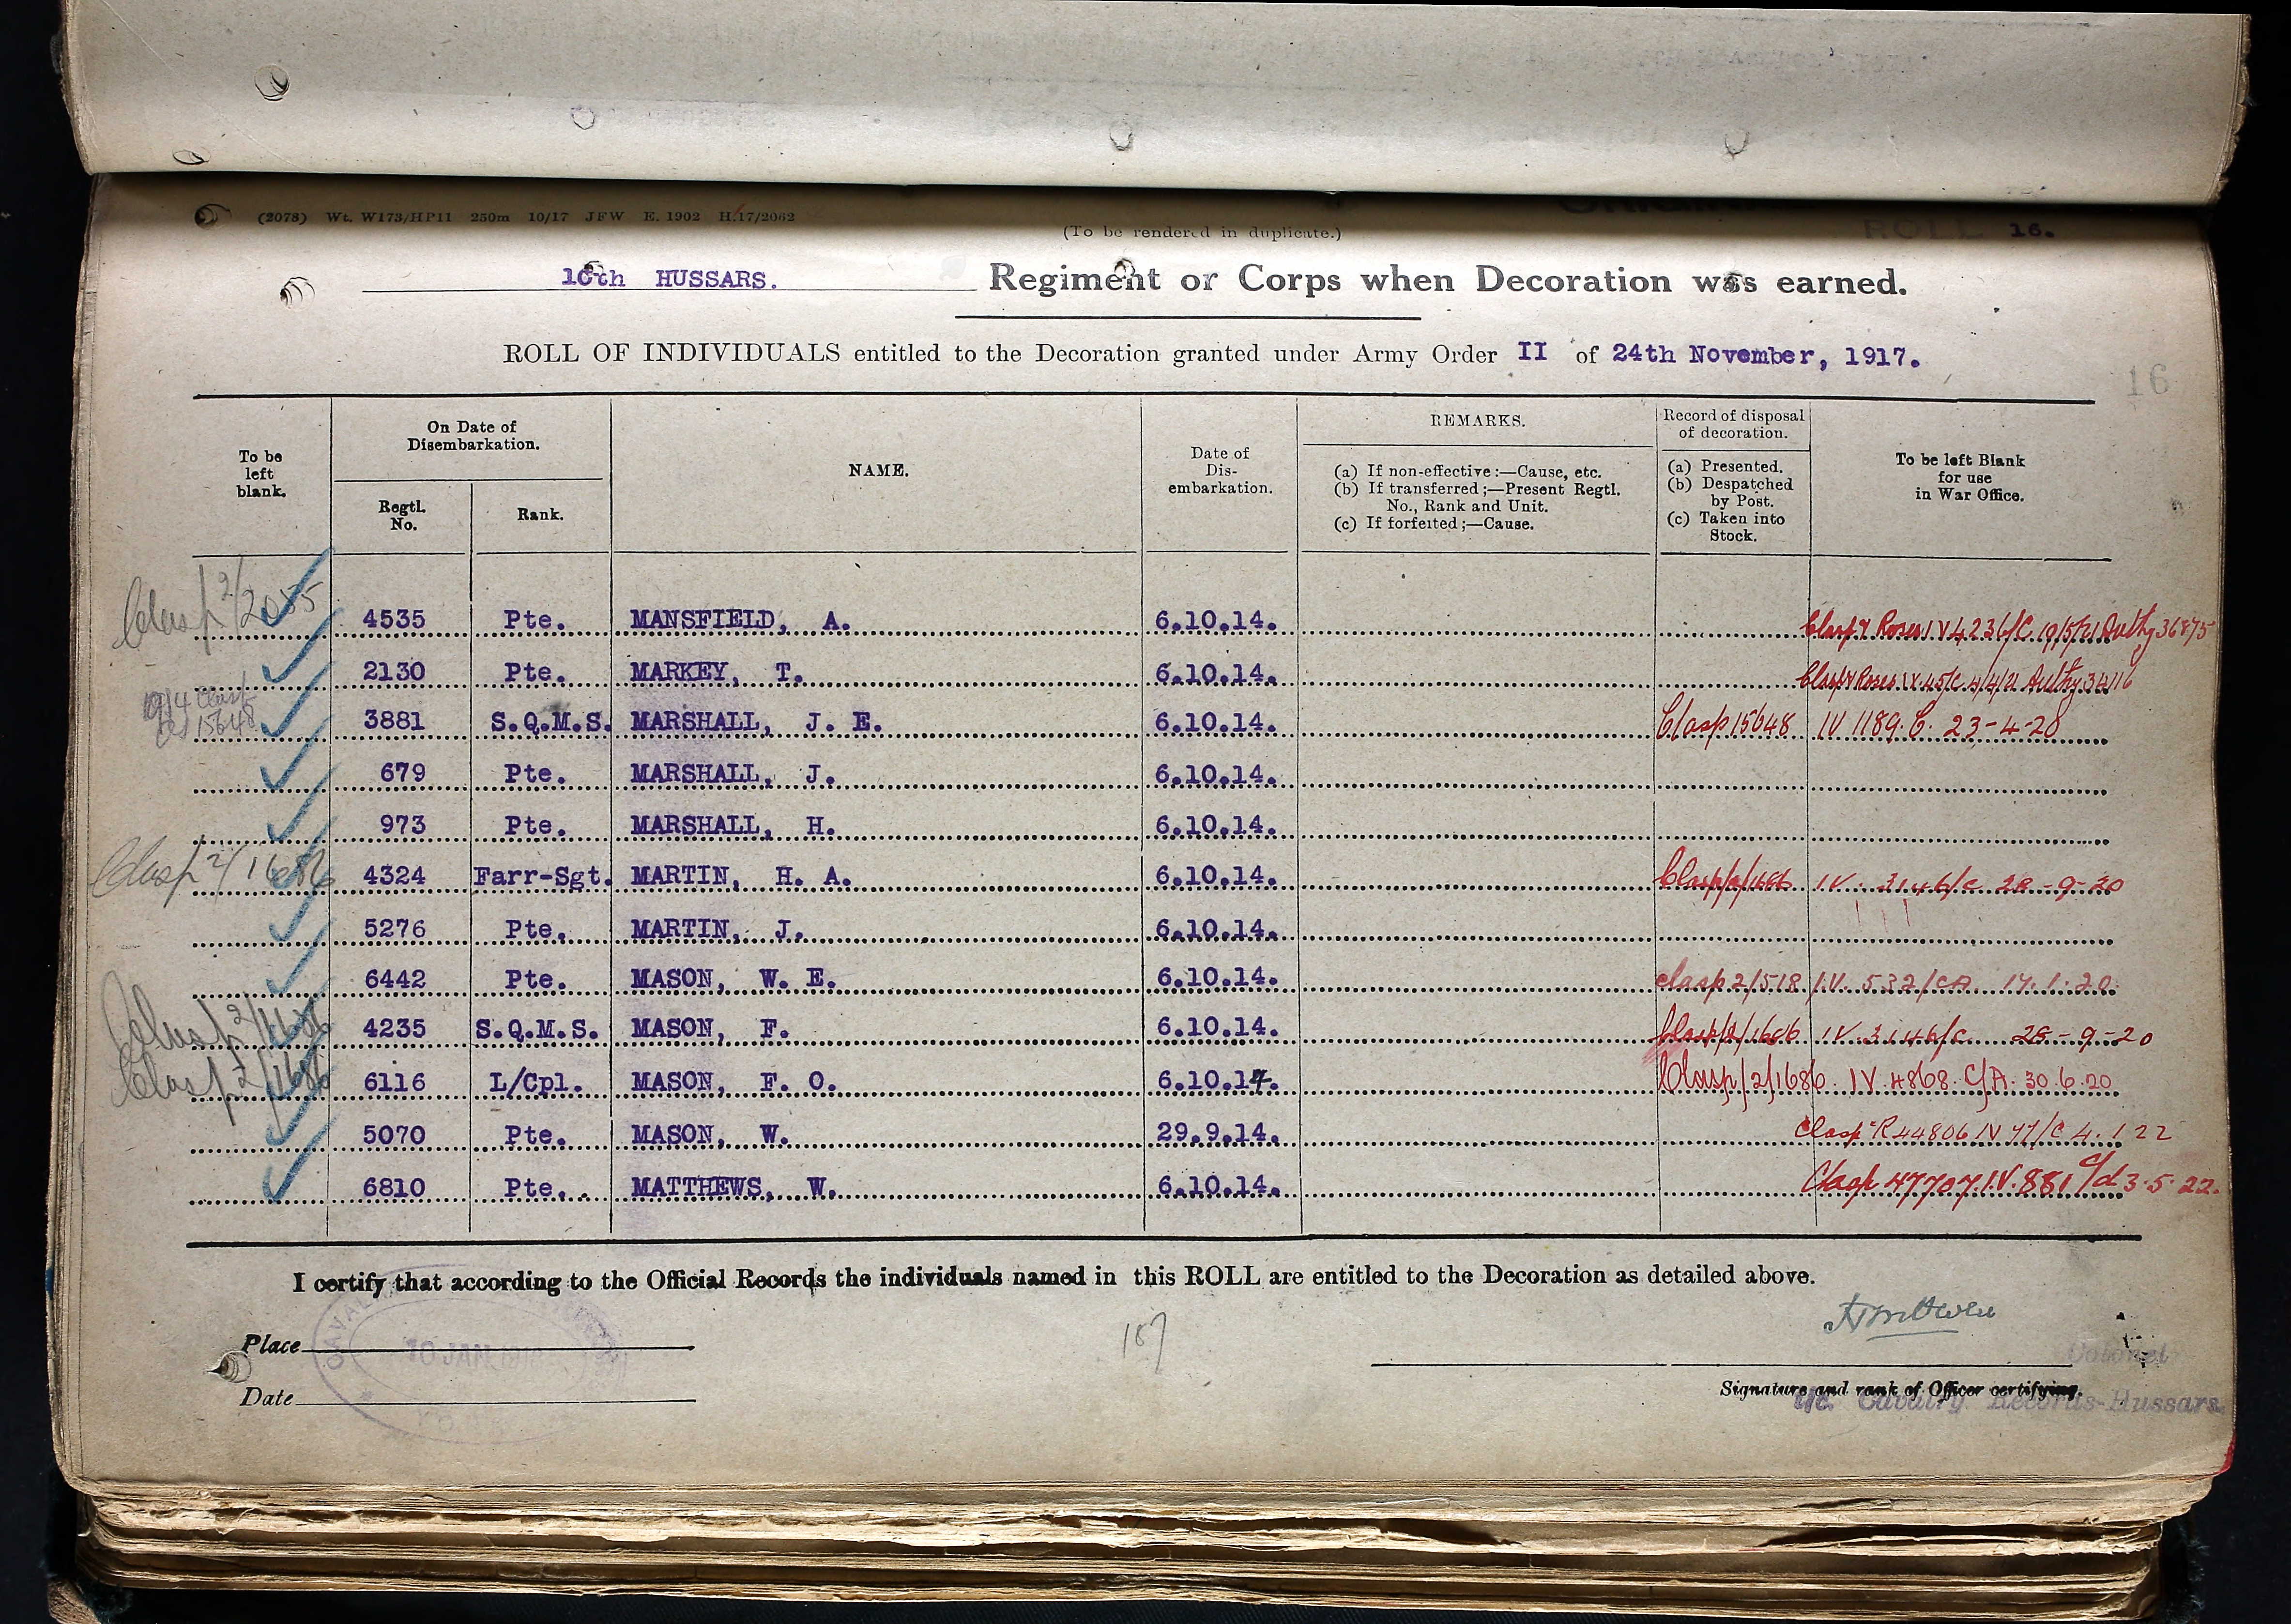 (2078) Wt. W173/HP11 250m 10/17 JFW E. 1902 H.17/2062
(To be rendered in duplicate.)
ROLL 16.
10th HUSSARS. Regiment or Corps when Decoration was earned.
ROLL OF INDIVIDUALS entitled to the Decoration granted under Army Order II of 24th November, 1917.
16
To be left blank.
On Date of Disembarkation.
Regtl. No.
Rank.
NAME.
Date of Dis-embarkation.
REMARKS.
(a) If non-effective:—Cause, etc.
(b) If transferred;—Present Regtl. No., Rank and Unit.
(c) If forfeited;—Cause.
Record of disposal of decoration.
(a) Presented.
(b) Despatched by Post.
(c) Taken into Stock.
To be left Blank for use in War Office.
Clasp 2/2055 4535 Pte. MANSFIELD, A. 6.10.14. Clasp & Roses IV 4236/C 19/5/21 Authy 36875
2130 Pte. MARKEY, T. 6.10.14. Clasp & Roses IV 45/C 4/4/21 Authy 34116
1914 Clasp 15648 3881 S.Q.M.S. MARSHALL, J. E. 6.10.14. Clasp 15648 IV 1189.C. 23-4-20
679 Pte. MARSHALL, J. 6.10.14.
973 Pte. MARSHALL, H. 6.10.14.
Clasp 2/1686 4324 Farr-Sgt. MARTIN, H. A. 6.10.14. Clasp/2/1686 IV. 3146/C 28-9-20
5276 Pte. MARTIN, J. 6.10.14.
6442 Pte. MASON, W. E. 6.10.14. Clasp 2/518 I.V. 532/CA. 17.1.20.
Clasp 2/1686 4235 S.Q.M.S. MASON, F. 6.10.14. Clasp/2/1686 IV. 3146/C. 28-9-20
Clasp 2/1686 6116 L/Cpl. MASON, F. O. 6.10.14. Clasp/2/1686. IV.4868.C/A. 30.6.20.
5070 Pte. MASON, W. 29.9.14. Clasp R44806 IV 47/C 4.1.22
6810 Pte. MATTHEWS, W. 6.10.14. Clasp 47707.I.V.881 C/d 3.5.22.
I certify that according to the Official Records the individuals named in this ROLL are entitled to the Decoration as detailed above.
187
Place
10 JAN
Colonel
Date
Signature and rank of Officer certifying.
i/c. Cavalry Records-Hussars.